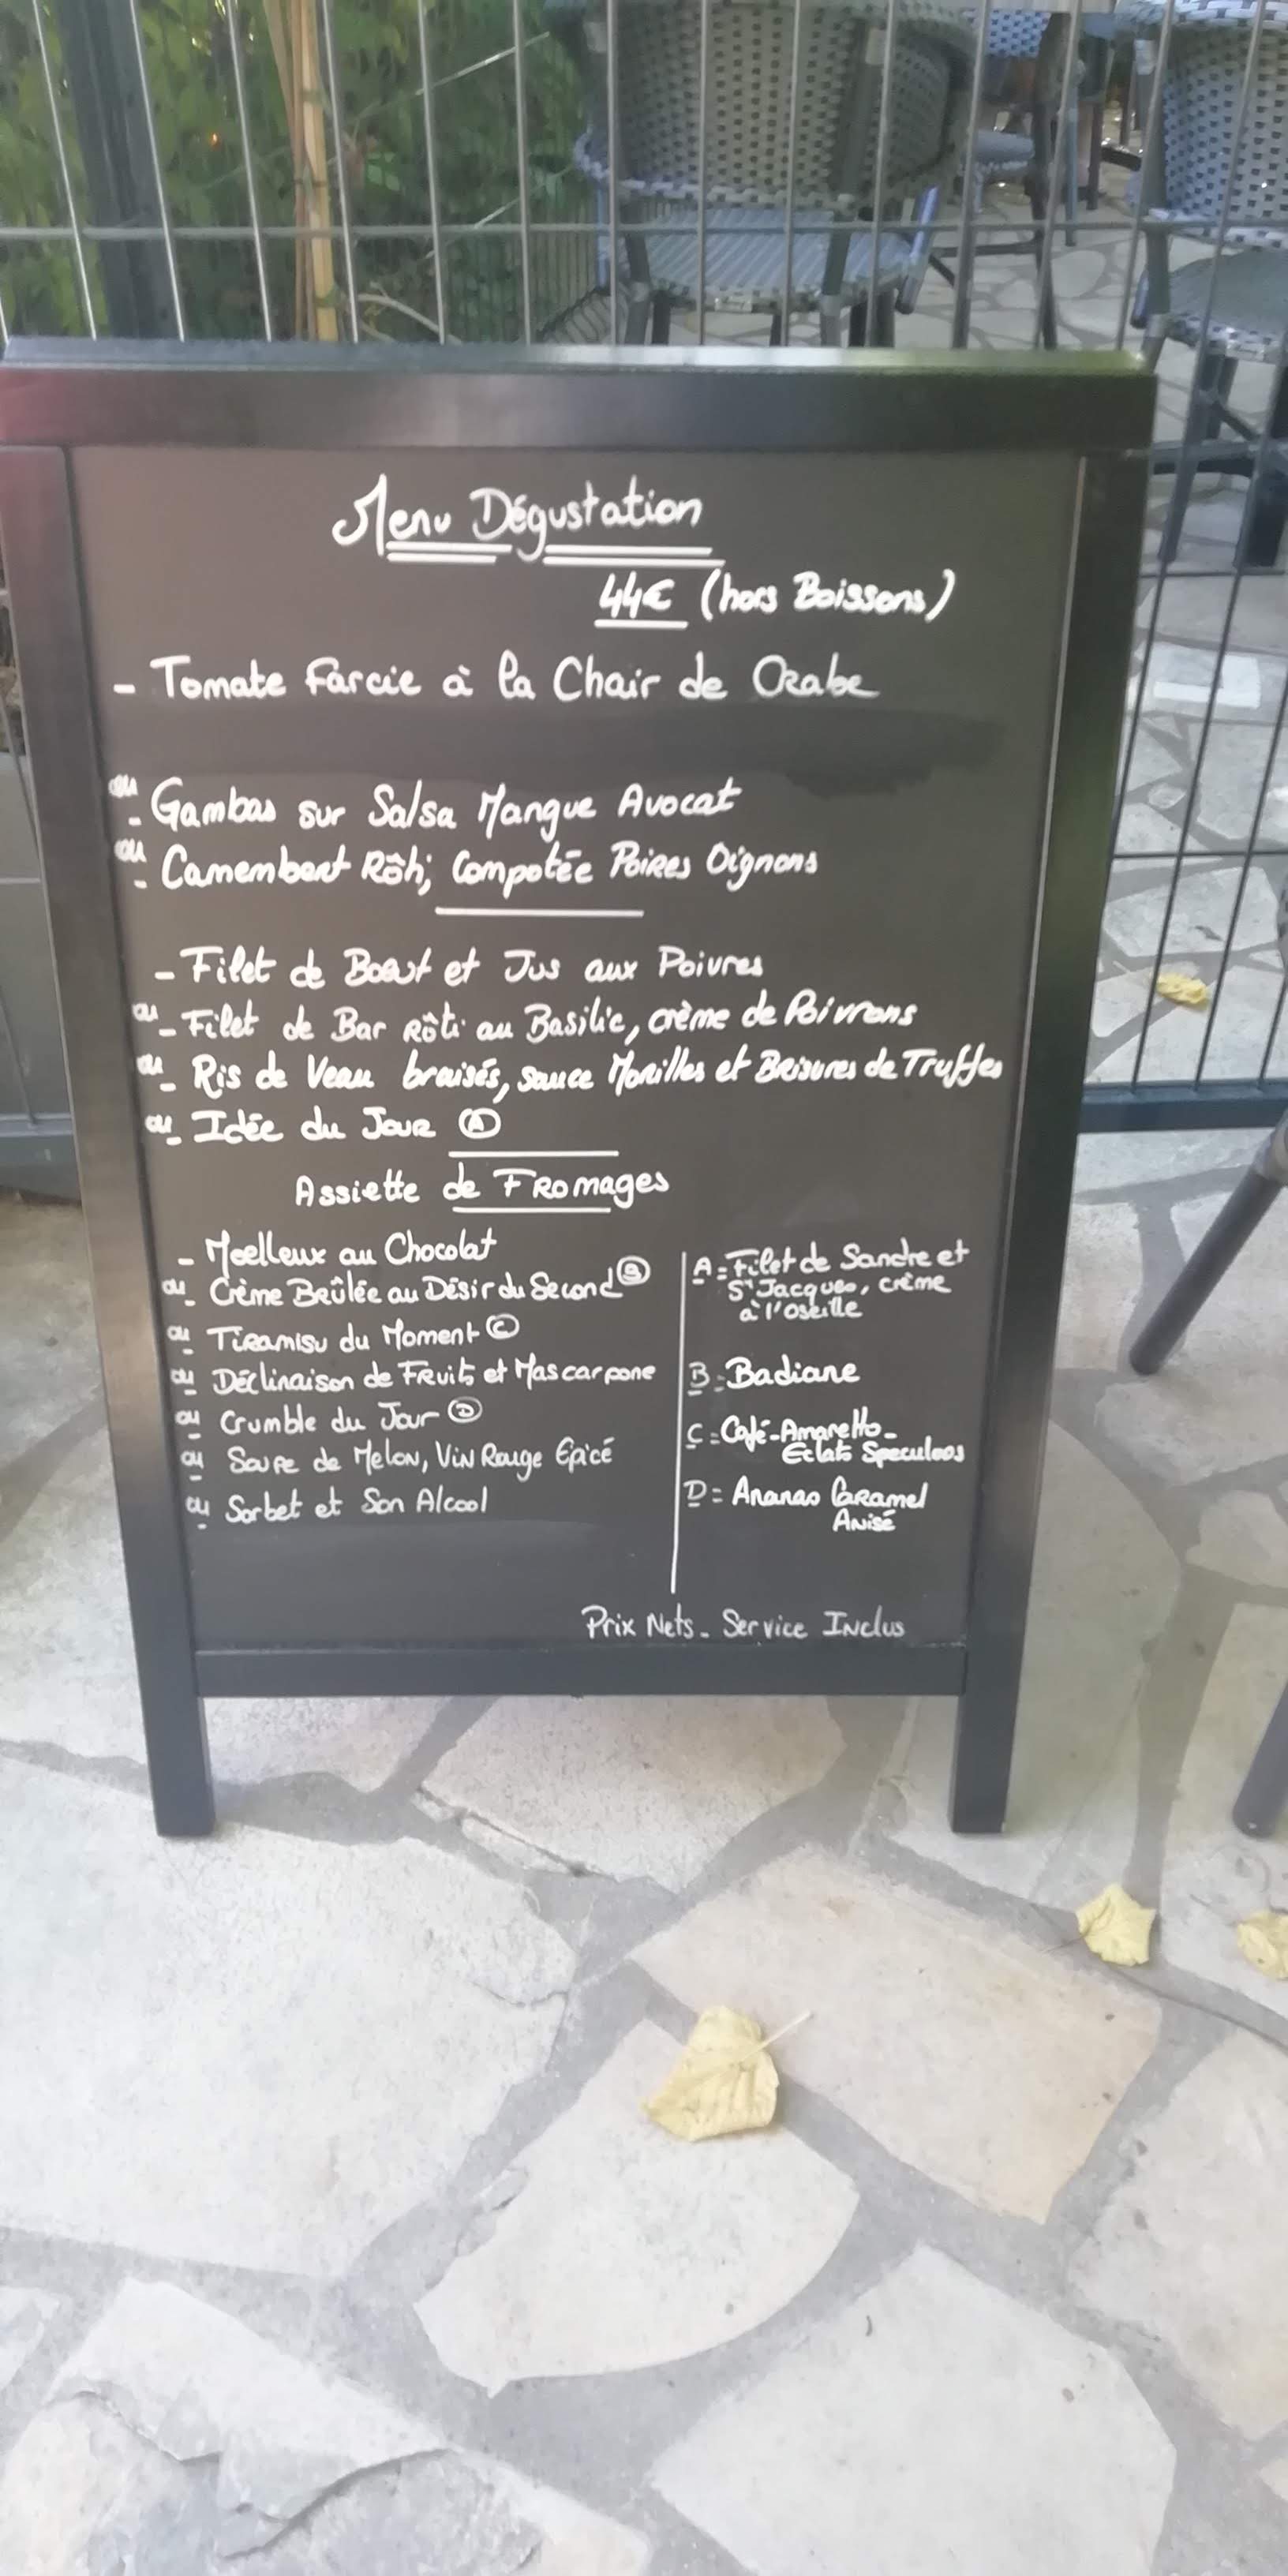 Menu Dégustation
44€ (hors Boissons)
- Tomate Farcie à la Chair de Crabe
ou - Gambas sur Salsa Mangue Avocat
ou - Camembert Rôti, Compotée Poires Oignons
- Filet de Boeuf et Jus aux Poivres
ou - Filet de Bar Rôti au Basilic, crème de Poivrons
ou - Ris de Veau braisés, sauce Morilles et Brisures de Truffes
ou - Idée du Jour Ⓐ
Assiette de Fromages
- Moelleux au Chocolat
ou - Crème Brûlée au Désir du Second Ⓑ
ou - Tiramisu du Moment Ⓒ
ou - Déclinaison de Fruits et Mascarpone
ou - Crumble du Jour Ⓓ
ou - Soupe de Melon, Vin Rouge Epicé
ou - Sorbet et Son Alcool
A = Filet de Sandre et
St Jacques, crème
à l'oseille
B = Badiane
C = Café-Amaretto-
Eclats Speculoos
D = Ananas Caramel
Anisé
Prix Nets - Service Inclus